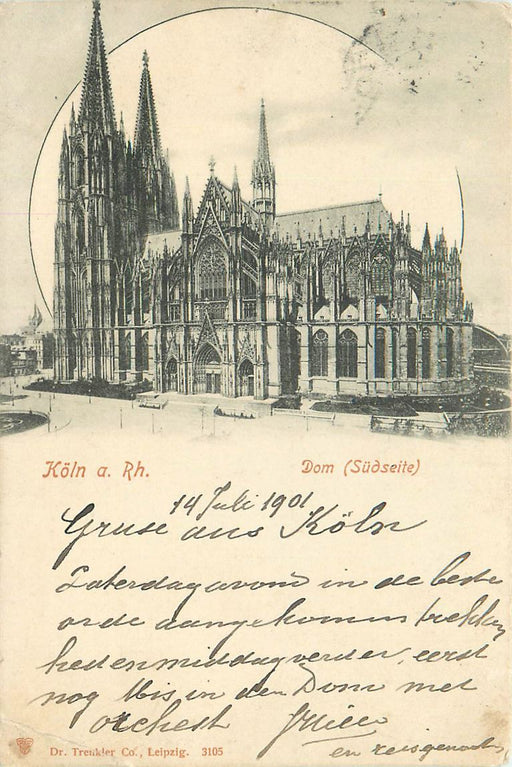 Köln a. Rh.
Dom (Südseite)
14 Juli 1901
Gruse aus Köln
Zaterdagavond in de beste
orde aangekomen trekken
heden middag verder, eerst
nog Mis in den Dom met
orchest
en reisgenoot
Dr. Trenkler Co., Leipzig. 3105